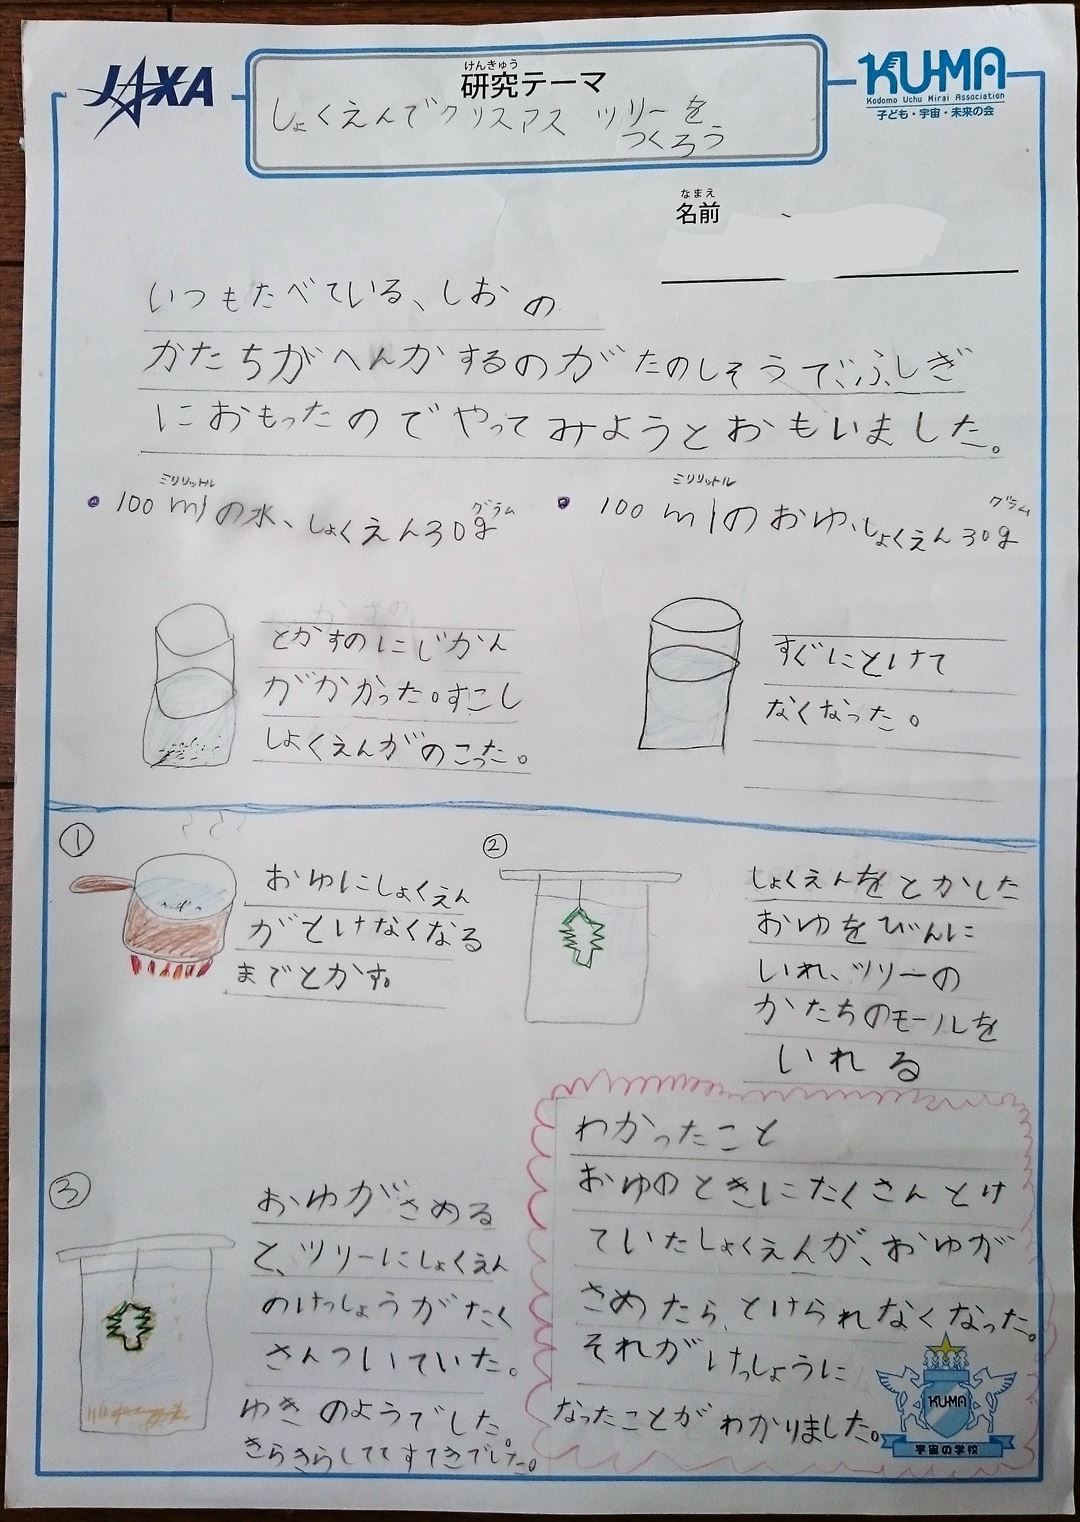 JAXA
けんきゅう
研究テーマ
しょくえんでクリスマス ツリーを
つくろう
KU-MA
Kodomo Uchu Mirai Association
子ども・宇宙・未来の会
なまえ
名前
いつもたべている、しおの
かたちがへんかするのがたのしそうで、ふしぎ
におもったのでやってみようとおもいました。
ミリリットル
グラム
100mlの水、しょくえん30g
ミリリットル
グラム
100mlのおゆ、しょくえん30g
とかすのにじかん
がかかった。すこし
しょくえんがのこった。
すぐにとけて
なくなった。
①
おゆにしょくえん
がとけなくなる
までとかす。
②
しょくえんをとかした
おゆをびんに
いれ、ツリーの
かたちのモールを
いれる
③
おゆがさめる
と、ツリーにしょくえん
のけっしょうがたく
さんついていた。
ゆきのようでした。
きらきらしててすてきでした。
わかったこと
おゆのときにたくさんとけ
ていたしょくえんが、おゆが
さめたら、とけられなくなった。
それがけっしょうに
なったことがわかりました。
KUMA
宇宙の学校